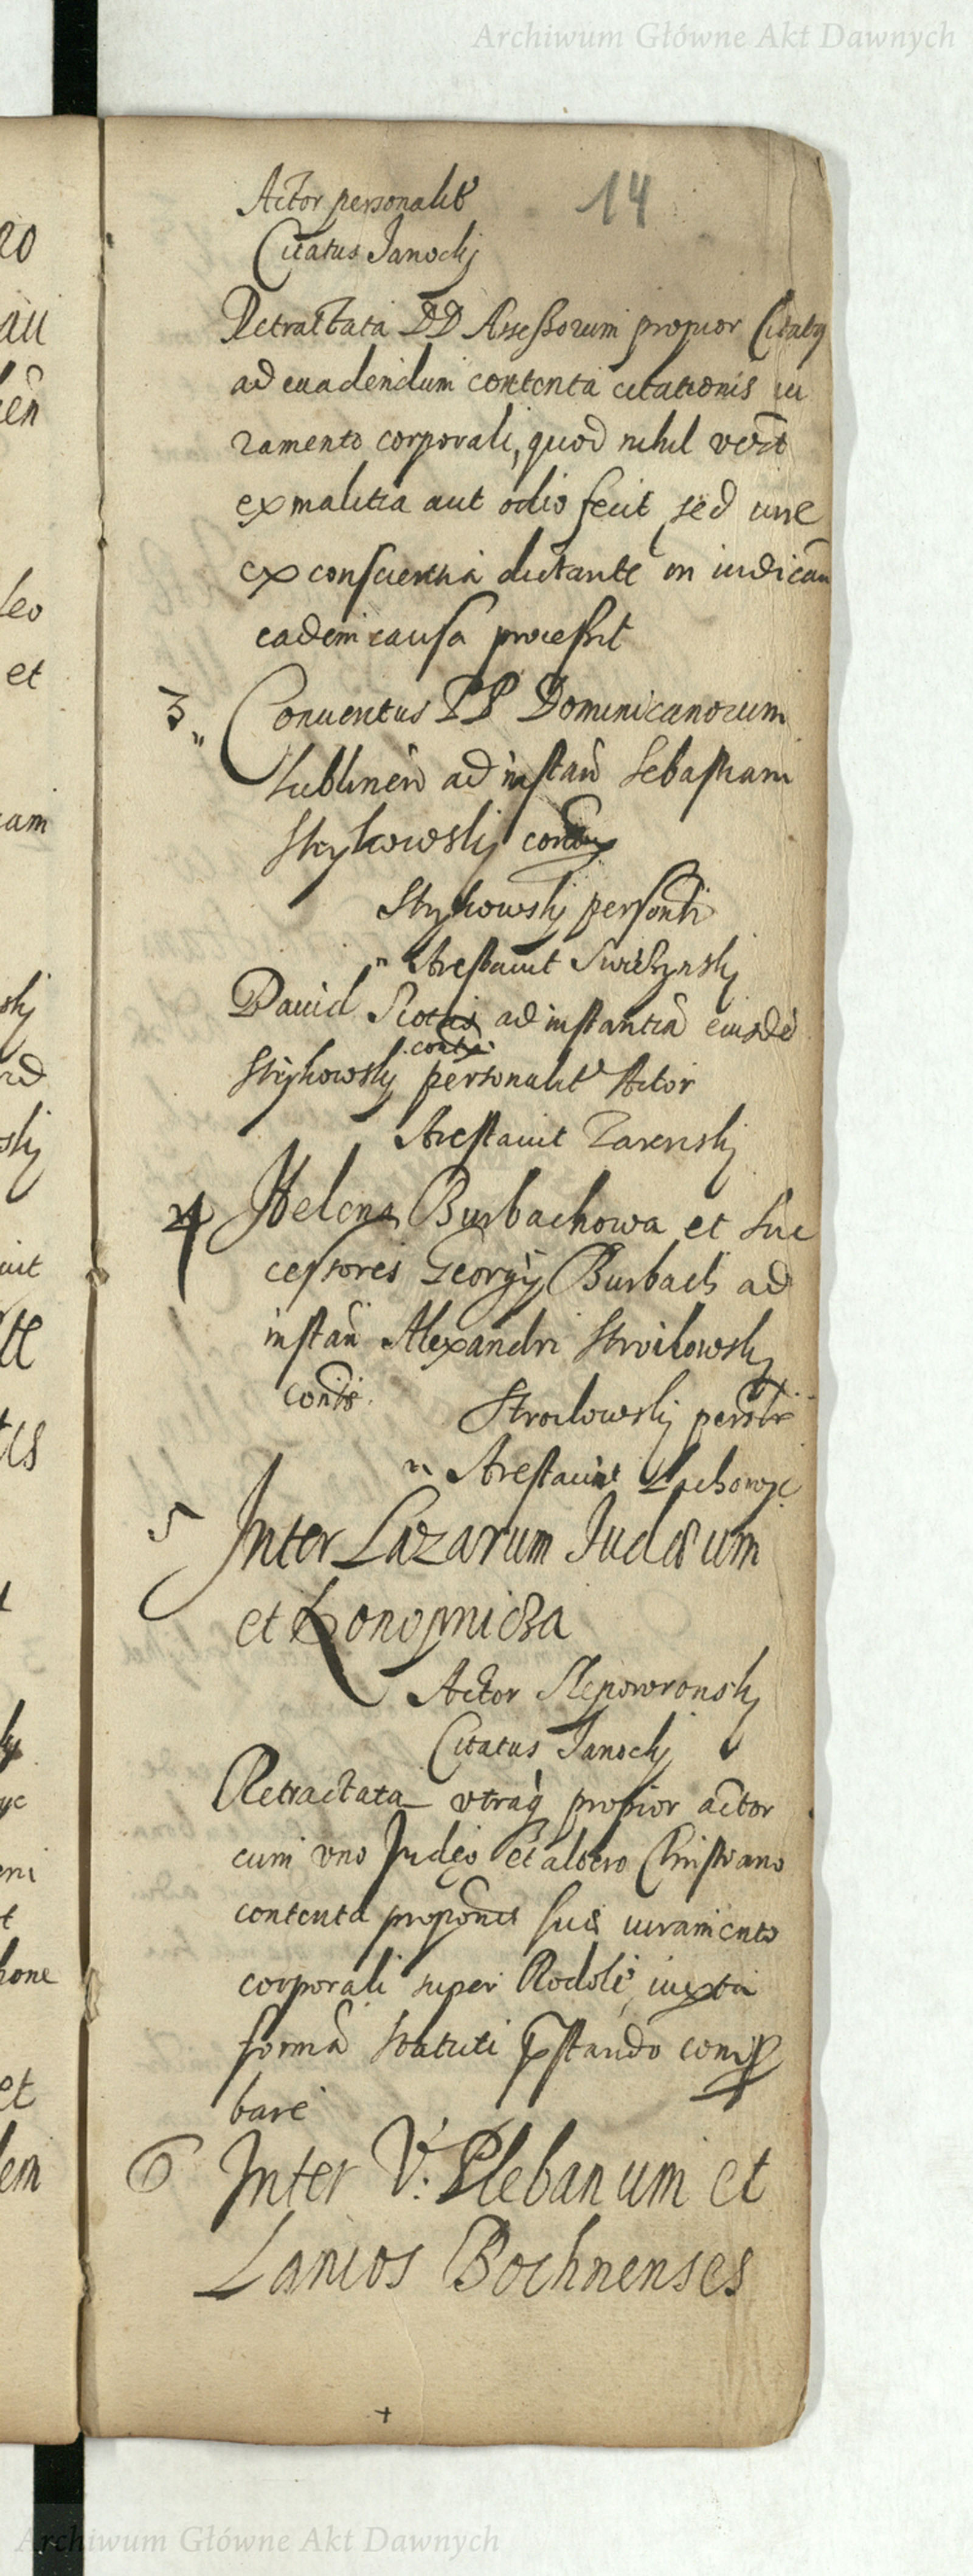 Archiwum Główne Akt Dawnych
14
Actor personalit
Citatus Janockj
Retractata DD Assessorum propior Citatus
ad euadendum contenta citationis iu
ramento corporali, quod nihil
ex malitia aut odio fecit sed iure
ex conscientia dictante in iudicam
eadem causa processit
3 Conuentus PP Dominicanorum
Lublinen ad instan Sebastiani
Strykowskj
Strykowskj
Arestauit
Dauid Scotus ad instantia eiusde
contu
Strykowskj personalit Actor
Arestauit Zarenskj
4 Helena Burbachowa et suc
cessores Georgij Burbach ad
instan Alexandri Stroilowskj
contis.
Stroilowskj
Arestauit
5 Inter Lazarum Judæum
et Konopnicka
Actor Slepowronskj
Citatus Janockj
Retractata vtraq propior actor
cum vno Judęo et altero Christiano
contenta suis iuramento
corporali super Rodoli iuxta
forma statuti pstando comp
bare
6 Inter V. Plebanum et
Lanios Bochnenses
Archiwum Główne Akt Dawnych